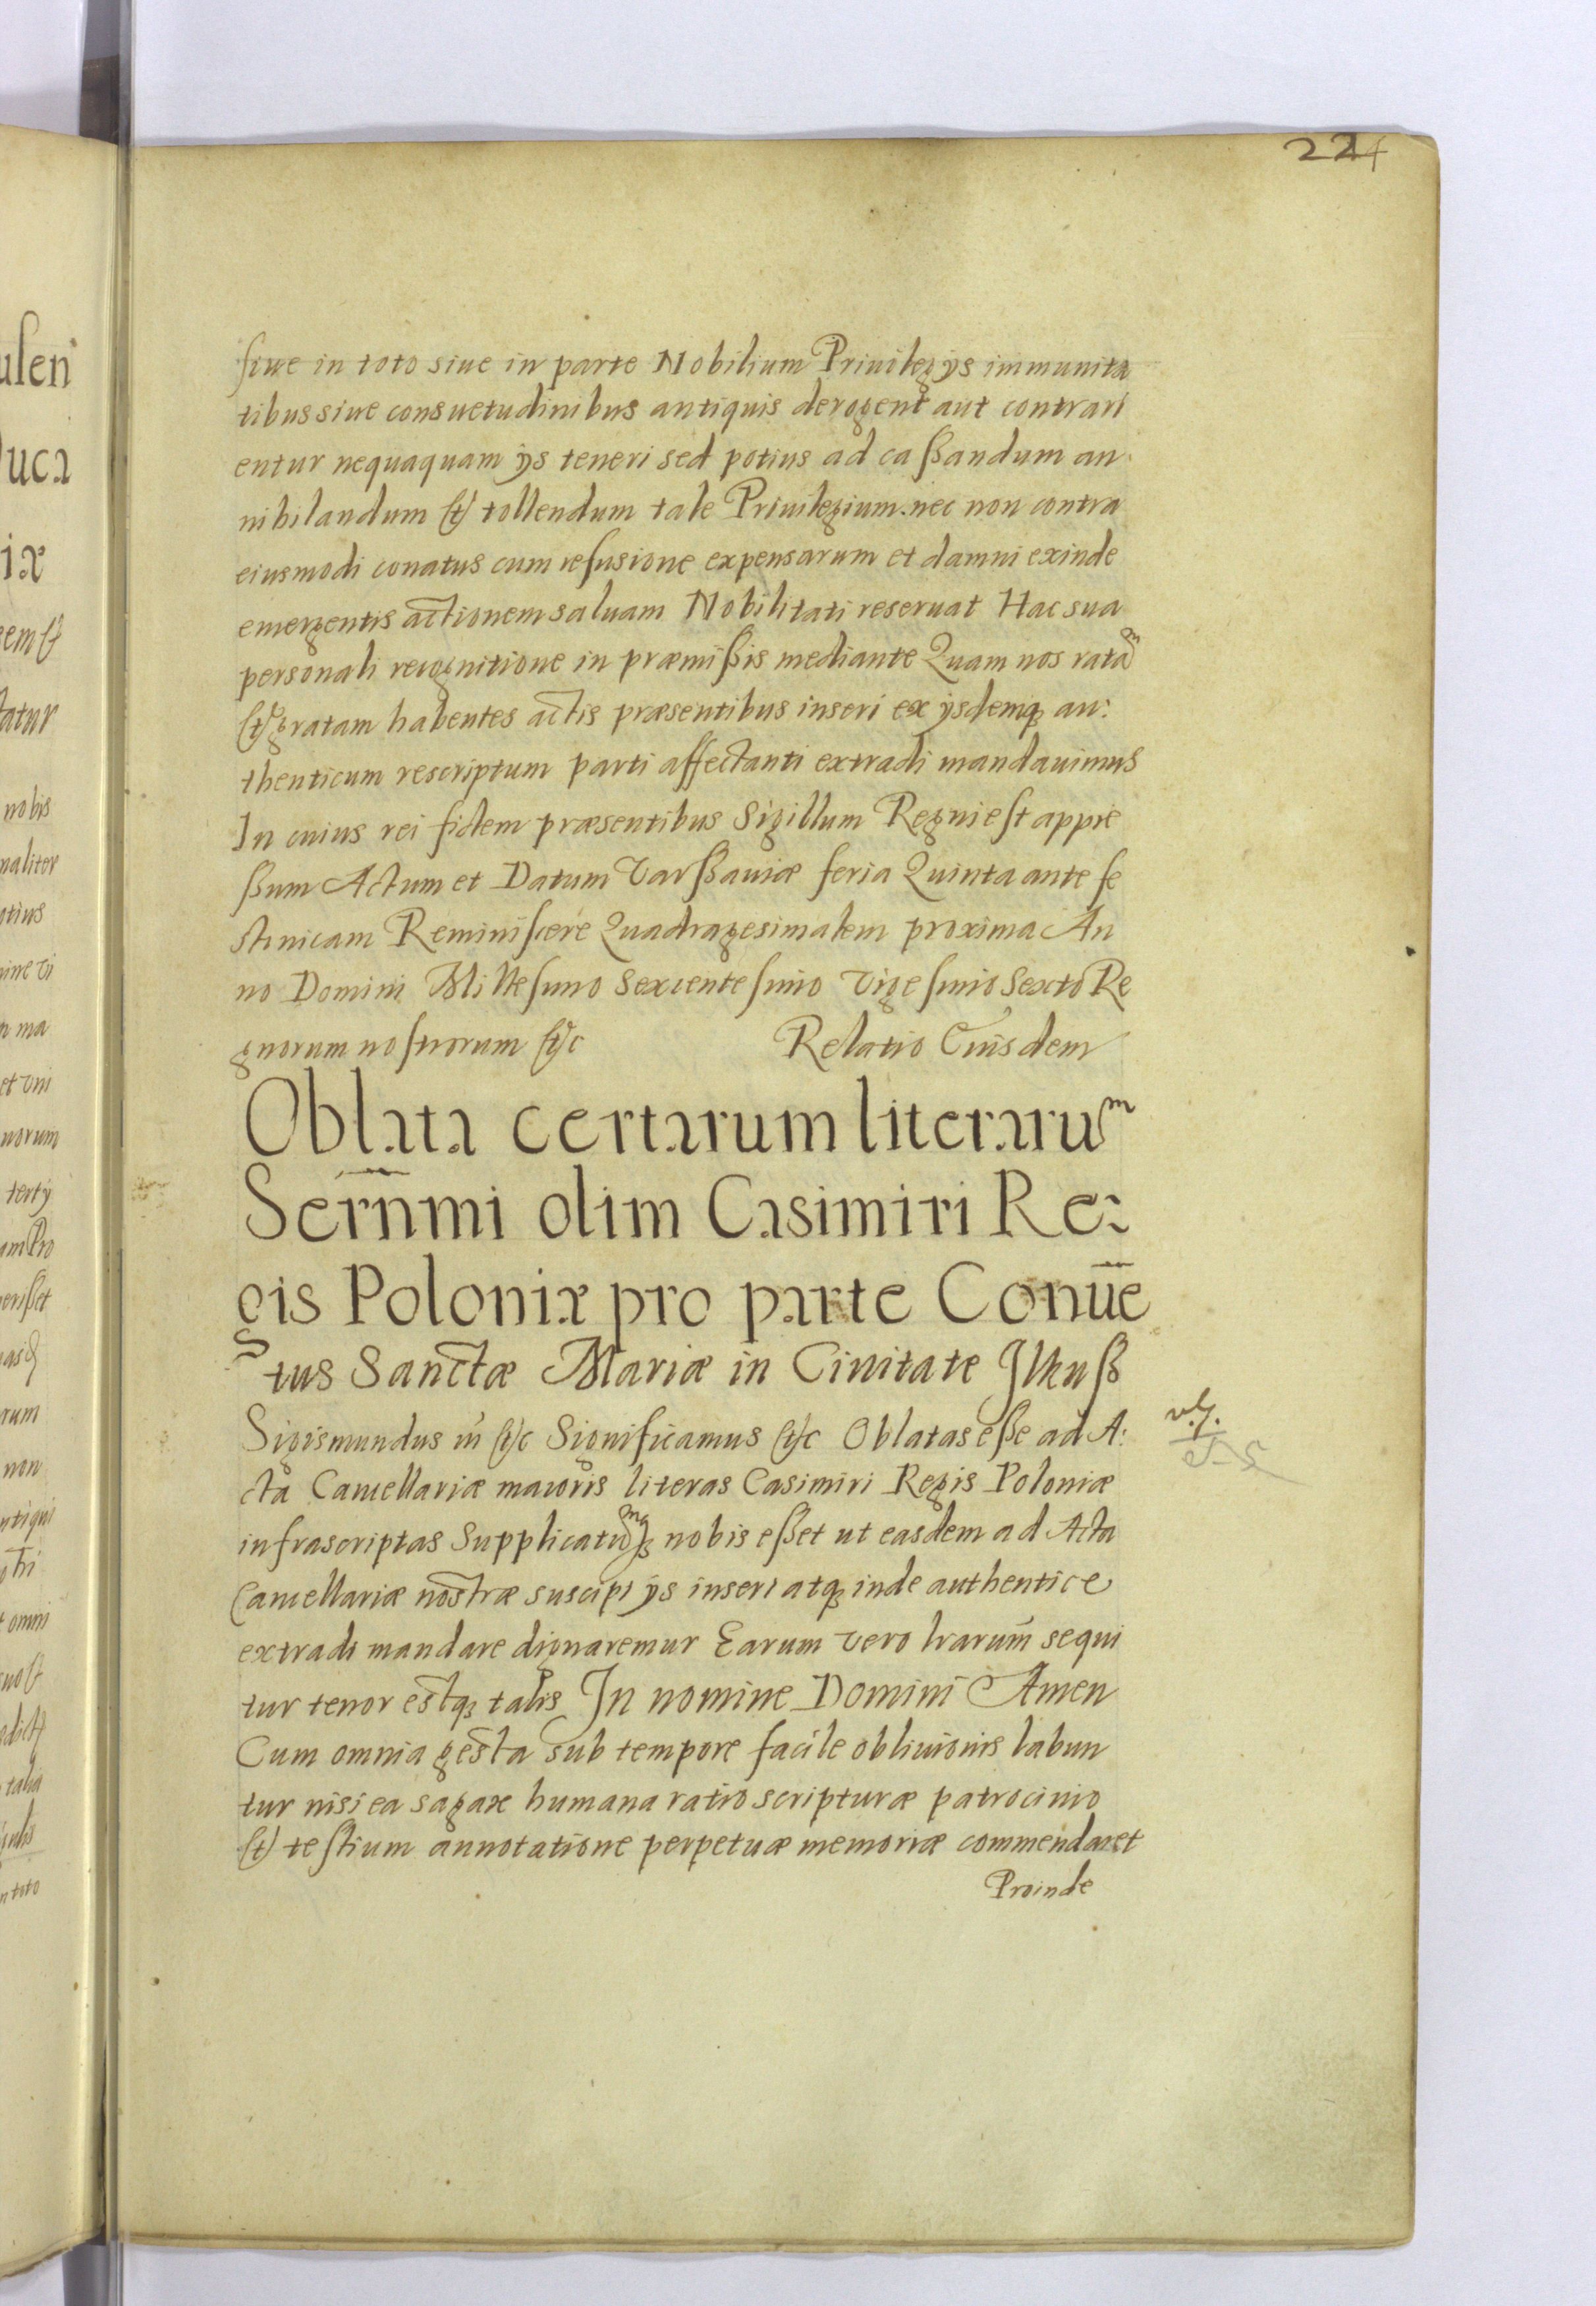 224
siue in toto siue in parte Nobilium Priuilegijs immunita
tibus siue consuetudinibus antiquis derogent aut contrari
entur nequaquam ijs teneri sed potius ad caßandum an
nihilandum et tollendum tale Priuilegium nec non contra
eiusmodi conatus cum refusione expensarum et damni exinde
emergentis actionem saluam Nobilitati reseruat Hac sua
personali recognitione in præmißis mediante Quam nos ratam
et gratam habentes actis præsentibus inseri ex ijsdemq au:
thenticum rescriptum parti affectanti extradi mandauimus
In cuius rei fidem præsentibus Sigillum Regni est appre
ßum Actum et Datum Varßauiæ feria Quinta ante fe
stinicam Reminiscere Quadragesimalem proxima An
no Domini Millesimo Sexcentesimo Vigesimo Sexto Re
gnorum nostrorum etc Relatio Eiusdem
Oblata certarum literarum
Serñmi olim Casimiri Re:
gis Poloniæ pro parte Conūe
tus Sanctæ Mariæ in Ciuitate Ilkuß
Sigismundus etc Significamus etc Oblatas eße ad A:
cta Cancellariæ maioris literas Casimiri Regis Poloniæ
infrascriptas Supplicatumq nobis eßet ut easdem ad Acta
Cancellariæ nostræ suscipi ijs inseri atq inde authentice
extradi mandare dignaremur Earum vero lrarum̄ sequi
tur tenor estq talis In nomine Domini Amen
Cum omnia gesta sub tempore facile obliuionis labun
tur nisi ea sagax humana ratio scripturæ patrocinio
et testium annotatione perpetuæ memoriæ commendaret
Proinde